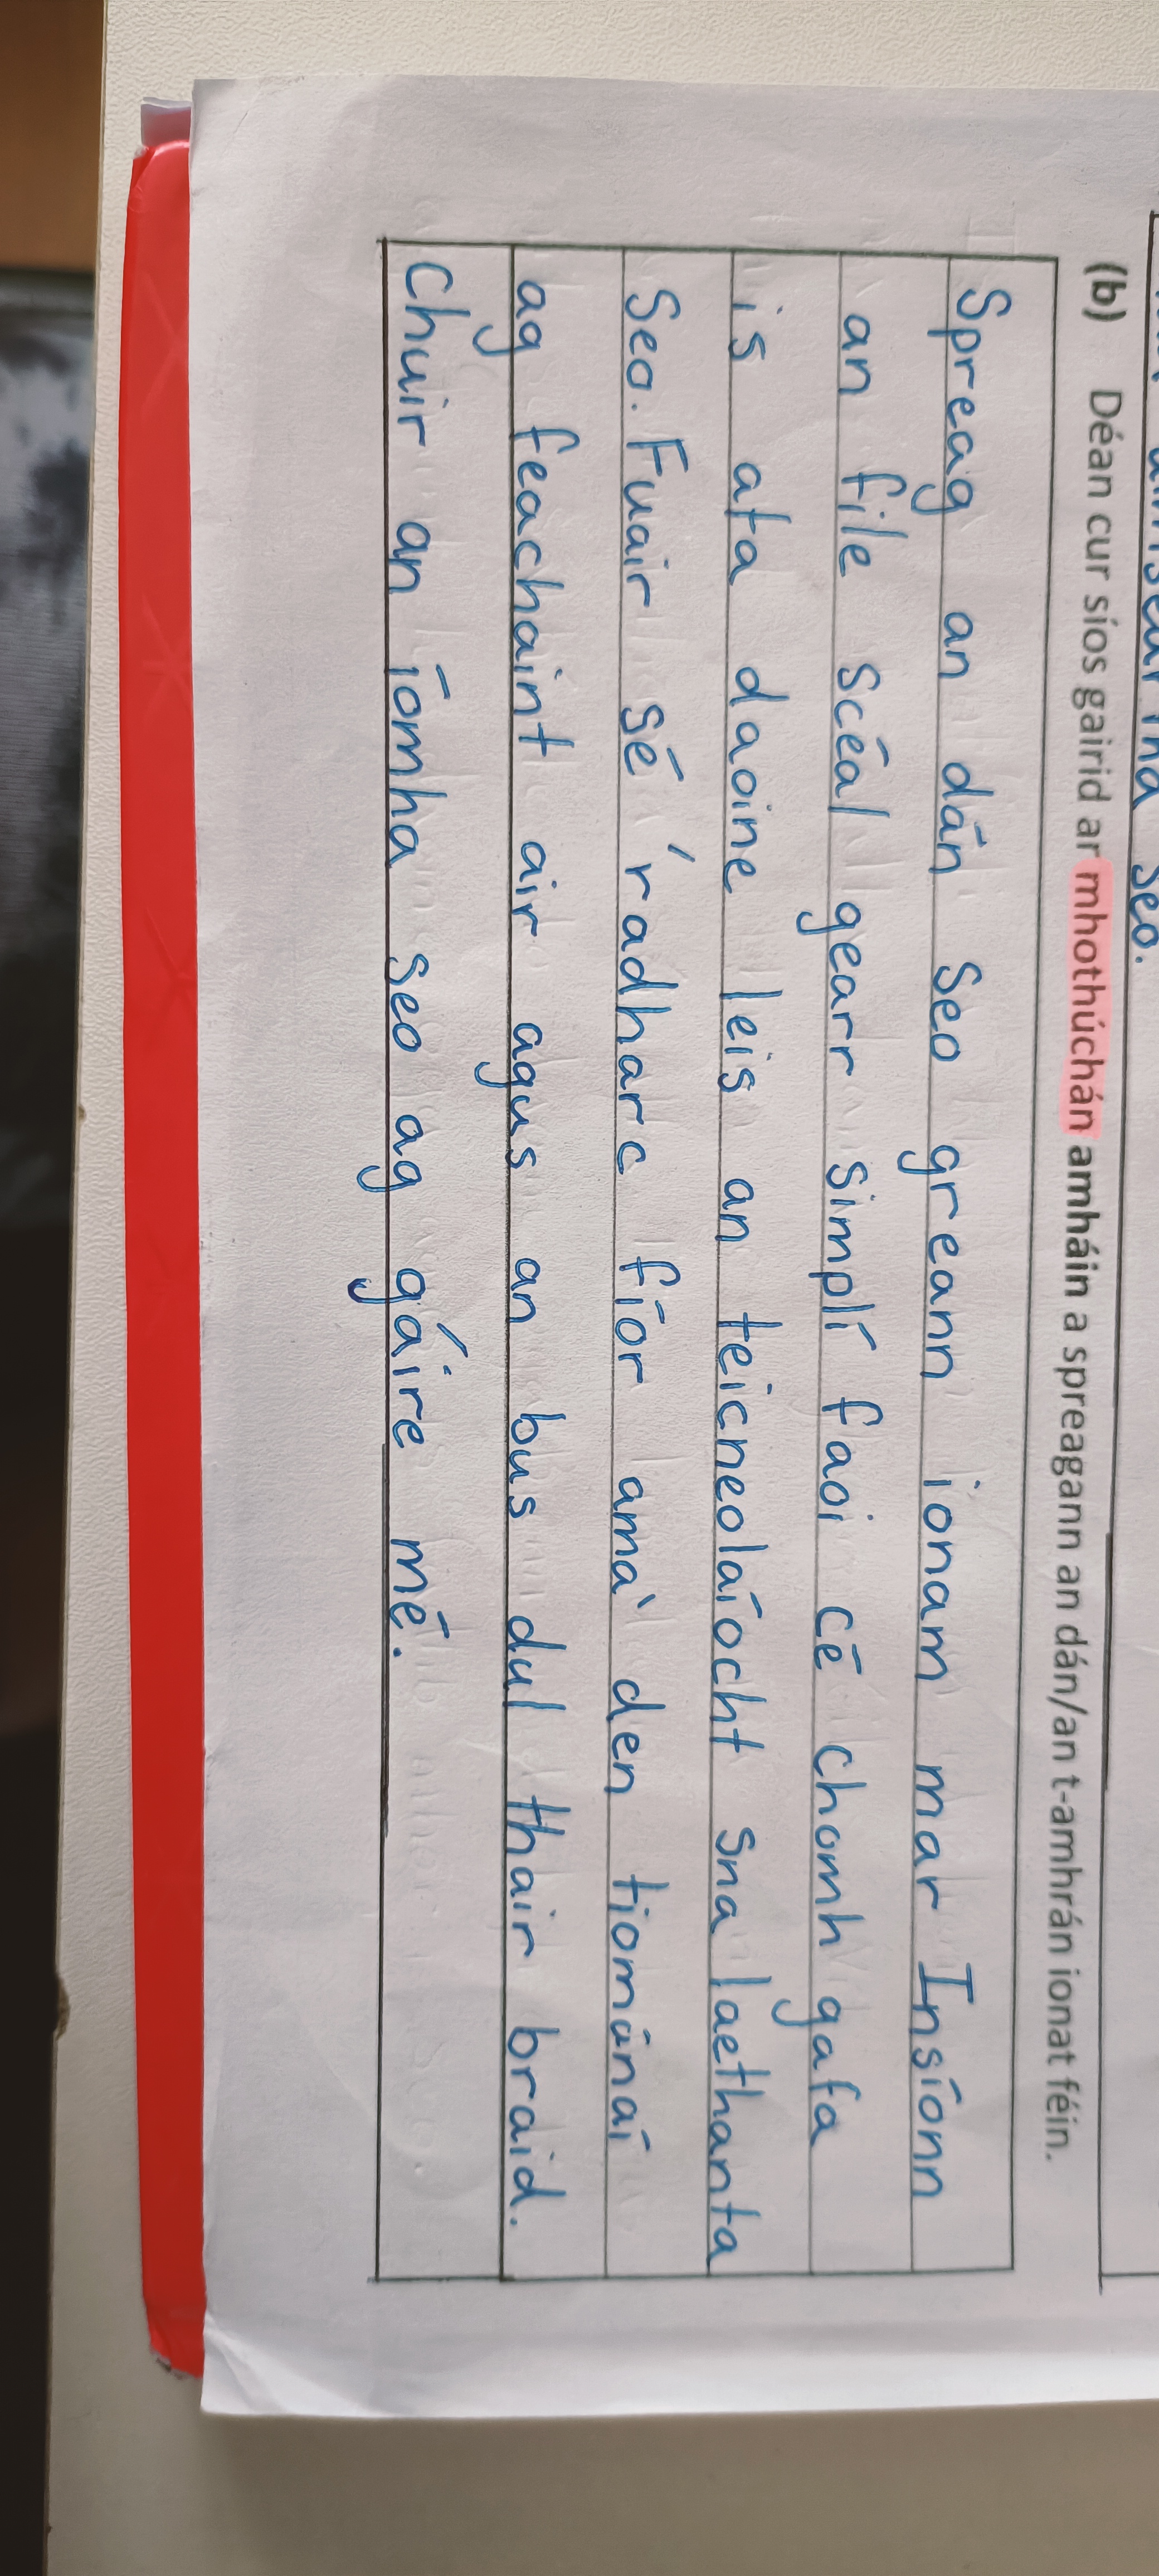 seo.
(b) Déan cur síos gairid ar mhothúchán amháin a spreagann an dán/an t-amhrán ionat féin.
Spreag an dán seo greann ionam mar Insíonn
an file scéal gearr simplí faoi cé chomh gafa
is ata daoine leis an teicneolaíocht sna laethanta
Seo. Fuair sé 'radharc fíor amà den tiománaí
ag feachaint air agus an bus dul thair braid.
Chuir an íomha seo ag gáire mé.